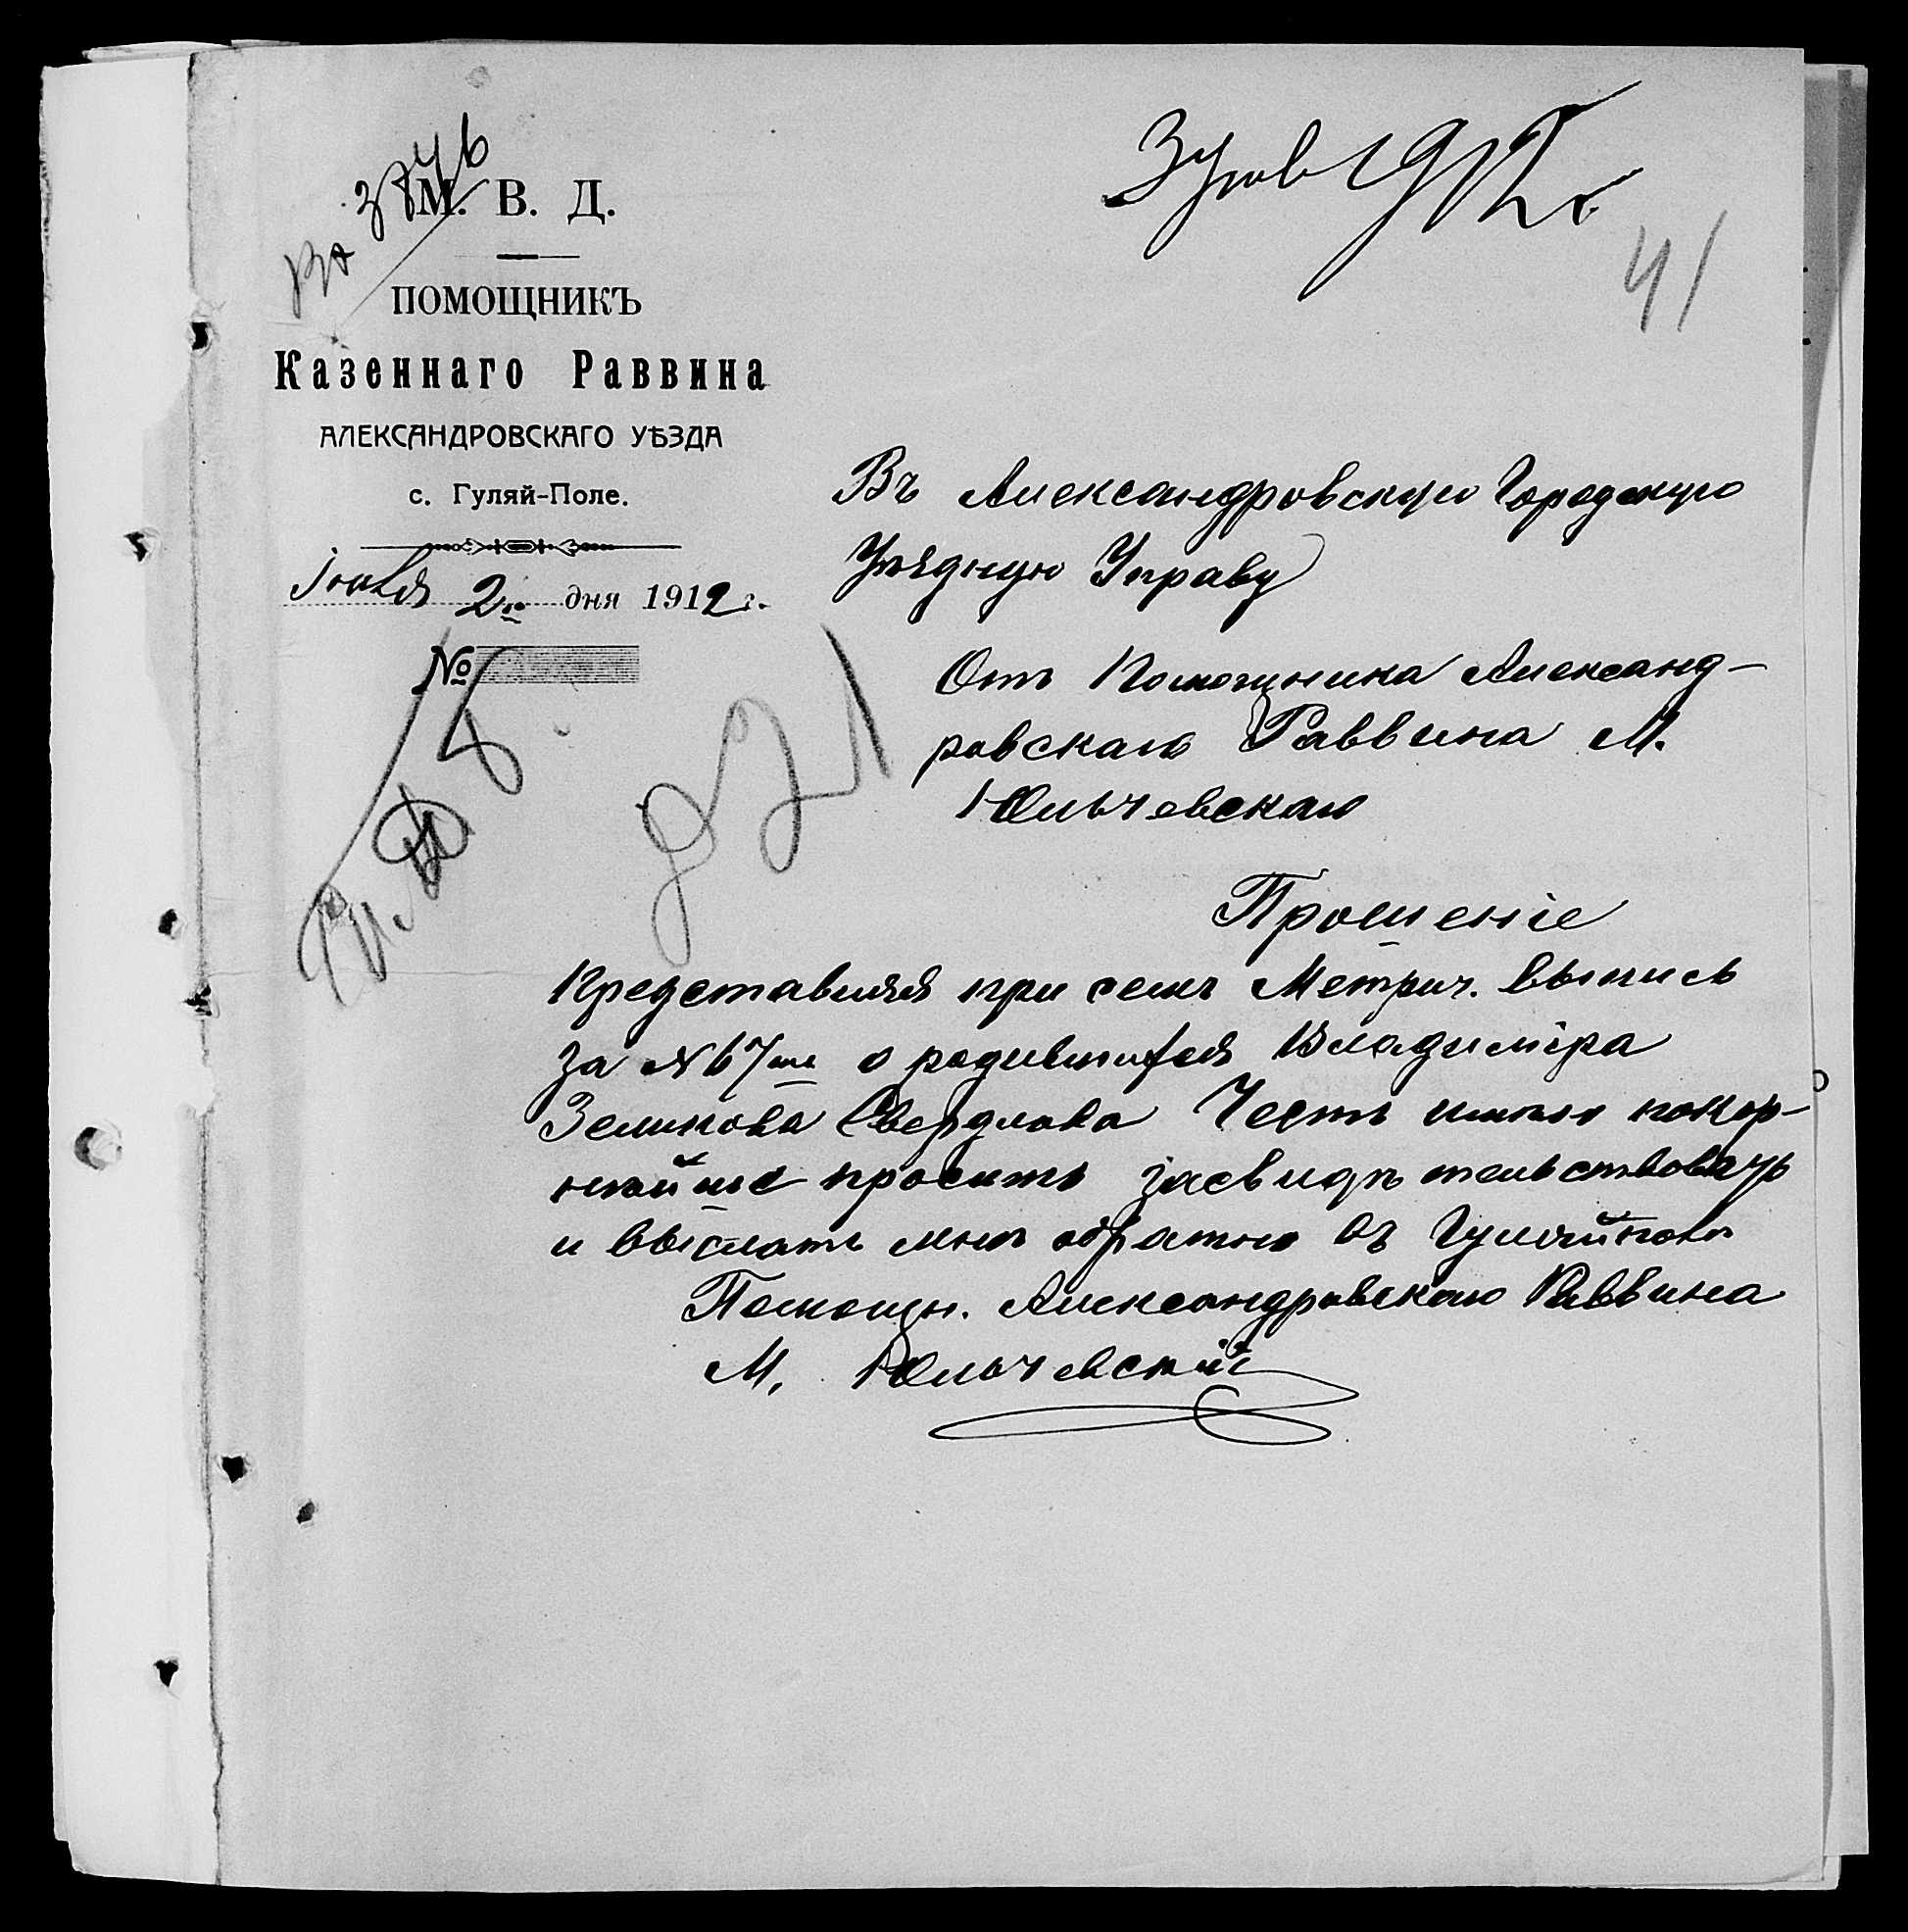 Вх 3746
М. В. Д.
ПОМОЩНИКЪ
Казеннаго Раввина
АЛЕКСАНДРОВСКАГО УѢЗДА
с. Гуляй-Поле.
Іюля 2го дня 1912 г.
№
3 Іюля 1912 г.
41
Въ Александровскую Городскую
Уѣздную Управу
Отъ Помощника Александ-
ровскаго Раввина М.
Юльчевскаго
Прошеніе
Представляя при семъ Метрич. выпись
За № 67мъ о родившихся Владиміра
Зеликова Свердлова Честь имѣю покор-
нѣйше просить засвидѣтельствовать
и выслать мнѣ обратно въ Гуляйполе
Помощн. Александровскаго Раввина
М. Юльчевскій